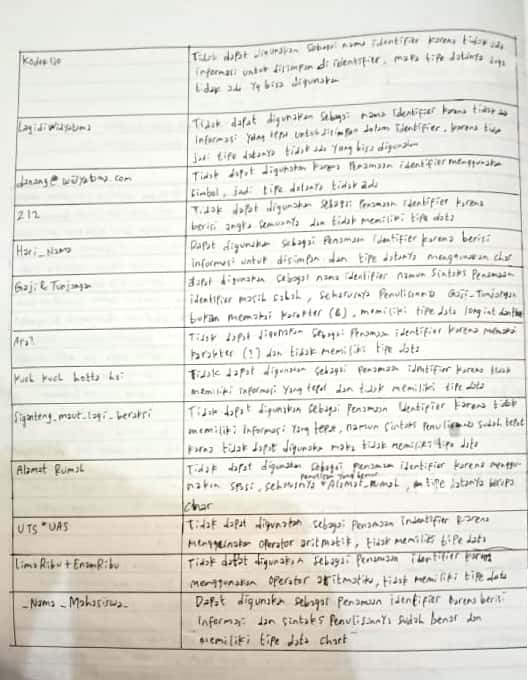 Kodok Ijo
Tidak dapat digunakan sebagai nama identifier karena tidak ada
informasi untuk disimpan di identifier, maka tipe datanya juga
tidak ada yg bisa digunakan
Lagi di Widyatama
Tidak dapat digunakan sebagai nama identifier karena tidak ada
informasi yang tepat untuk disimpan dalam identifier, karena tidak
jadi tipe datanya tidak ada yang bisa digunakan
danang@widyatama.com
Tidak dapat digunakan karena Penamaan identifier menggunakan
simbol, jadi tipe datanya tidak ada
212
Tidak dapat digunakan sebagai Penamaan identifier karena
berisi angka semuanya dan tidak memiliki tipe data
Hari_Nama
Dapat digunakan sebagai Penamaan identifier karena berisi
informasi untuk disimpan dan tipe datanya menggunakan char
Gaji & Tunjangan
dapat digunakan sebagai nama identifier namun Sintaks Penamaan
identifier masih salah, seharusnya Penulisannya Gaji_Tunjangan
bukan memakai karakter (&), memiliki tipe data longint
Apa?
Tidak dapat digunakan sebagai Penamaan identifier karena memakai
karakter (?) dan tidak memiliki tipe data
Kuch kuch hotta hai
Tidak dapat digunakan sebagai Penamaan identifier karena tidak
memiliki informasi yang tepat dan tidak memiliki tipe data
Siganteng_maut_lagi_beraksi
Tidak dapat digunakan sebagai Penamaan Identifier karena tidak
memiliki informasi yang tepat, namun sintaks Penulisannya sudah tepat
karna tidak dapat digunakan maka tidak memiliki tipe data
Alamat Rumah
Tidak dapat digunakan sebagai penamaan identifier karena menggu-
nakan spasi, seharusnya penulisan yang benar "Alamat_Rumah, tipe datanya berupa
char
UTS*UAS
Tidak dapat digunakan sebagai Penamaan indentifier karena
menggunakan operator aritmatik, tidak memiliki tipe data
LimaRibu+EnamRibu
Tidak dapat digunakan sebagai Penamaan identifier karena
menggunakan operator aritmatika, tidak memiliki tipe data
_Nama_Mahasiswa_
Dapat digunakan sebagai Penamaan identifier karena berisi
Informasi dan sintaks Penulisannya sudah benar dan
memiliki tipe data